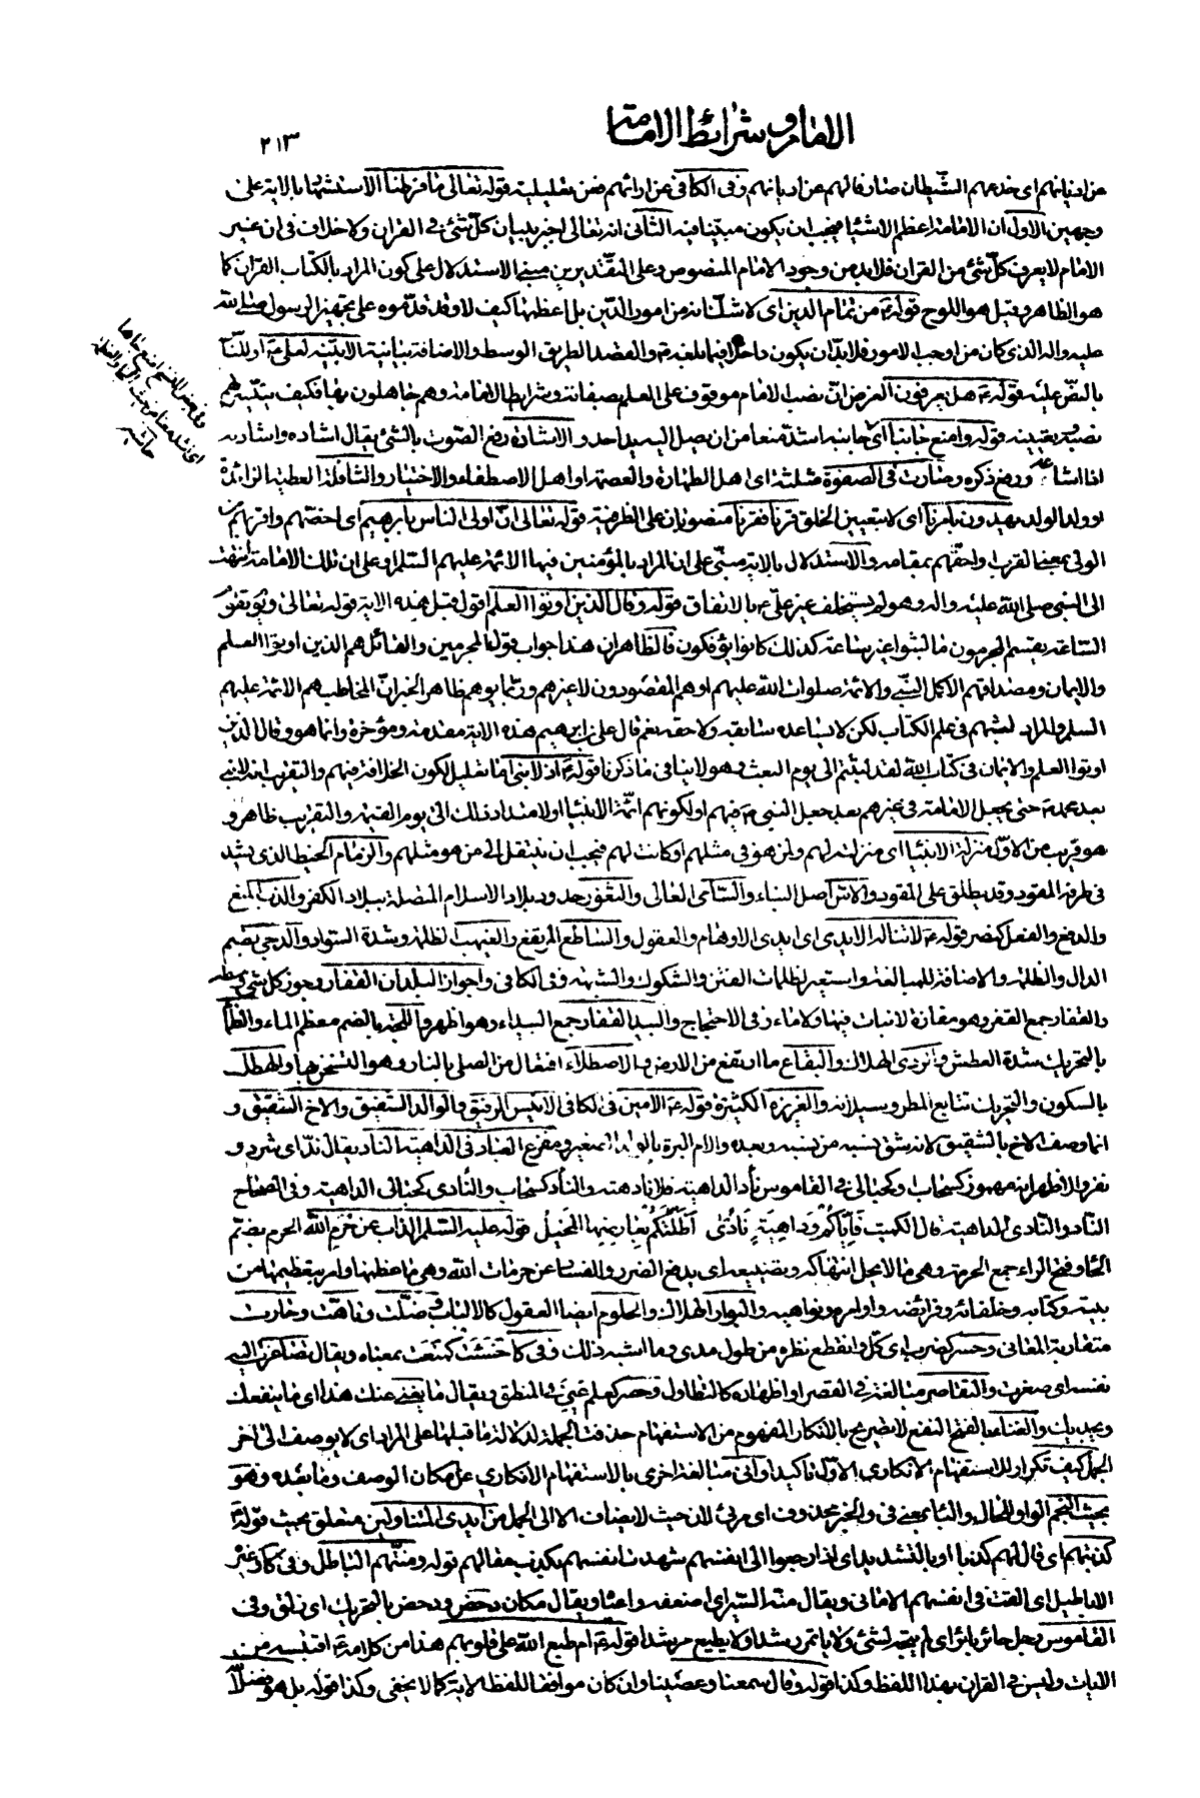 الامام و شرائط الامامة
٢١٣
عن اديانهم اى خدعهم الشيطان صارفا لهم عن اديانهم وفى الكافى عن ارائهم فمن تعليلية قوله تعالى ما فرطنا الاستشهاد بالاية على
وجهين الاول ان الامامة اعظم الاشياء فيجب ان يكون مبينا فيه الثانى انه تعالى اخبر ببيان كل شئ فى القران ولا خلاف فى ان غير
الامام لا يعرف كل شئ من القران فلابد من وجود الامام المنصوص وعلى التقديرين مبنى الاستدلال على كون المراد بالكتاب القران كما
هو الظاهر وقيل هو اللوح قوله ع من تمام الدين اى لا شك انه من امور الدين بل اعظمها كيف لا وقد قدموه على تجهيز الرسول صلى الله
عليه واله الذى كان من اوجب الامور فلابد ان يكون داخلا فيما بلغه والقصد الطريق الوسط والاضافة بيانية
بالنص عليه قوله ع هل يعرفون الغرض ان نصب الامام موقوف على العلم بصفاته وشرائط الامامة وهم جاهلون بها فكيف يتيسر لهم
نصبه وتعيينه قوله وامنع جانبا اى جانبه اشد منعا من ان يصل اليه يد احد والاشادة رفع الصوت بالشئ يقال اشاده واشاد به
اذا اشاعه ورفع ذكره وصارت فى الصفوة مثلثة اى اهل الطهارة والعصمة او اهل الاصطفاء والاختيار والنافلة العطية الزائدة
او ولد الولد يهدون بامرنا اى لا بتعيين الخلق قرنا فقرنا منصوبان على الظرفية قوله تعالى ان اولى الناس بابرهيم اى اخصهم واقربهم من
الولى بمعنى القرب او احقهم بمقامه والاستدلال بالاية مبنى على ان المراد بالمؤمنين فيها الائمة عليهم السلم او على ان تلك الامامة انتهت
الى النبى صلى الله عليه واله وهو لم يستخلف غير على ع بالاتفاق قوله وقال الذين اوتوا العلم اقول قبل هذه الاية قوله تعالى ويوم تقوم
الساعة يقسم المجرمون ما لبثوا غير ساعة كذلك كانوا يؤفكون فالظاهر ان هذا جواب قول المجرمين والقائل هم الذين اوتوا العلم
والايمان ومصداقهم الاكمل النبى والائمة صلوات الله عليهم او هم المقصودون لا غيرهم وربما يوهم ظاهر الخبر ان المخاطب هم الائمة عليهم
السلم والمراد لبثهم فى علم الكتاب لكن لا يساعده سابقه ولا حقه نعم قال على بن ابرهيم هذه الاية مقدمة ومؤخرة وانما هو وقال الذين
اوتوا العلم والايمان فى كتاب الله لقد لبثتم الى يوم البعث وهو لا ينافى ما ذكرنا قوله ع اذ لا نبى اما تعليل لكون الخلافة فيهم والتقريب انه لا نبى
بعد محمد ص حتى يجعل الامامة فى غيرهم بعد جعل النبى ص فيهم او لكونهم ائمة الانبياء او لامتداد ذلك الى يوم القيمة والتقريب ظاهر و
هو قريب من الاول منزلة الانبياء اى منزلته لهم ولمن هو فى مثلهم او كانت لهم فيجب ان ينتقل الى من هو مثلهم والزمام الخيط الذى يشد
فى طرفه المقود وقد يطلق على المقود والاس اصل البناء والسامى العالى والثغور حدود بلاد الاسلام المتصلة ببلاد الكفر والذب المنع
والدفع والفعل كنصر قوله ع لا تناله الايدى اى ايدى الاوهام والعقول والساطع المرتفع والغيهب الظلمة وشدة السواد والدجى بضم
الدال والظلمة والاضافة للمبالغة واستعير لظلمات الفتن والشكوك والشبه وفى الكافى واجواز البلدان القفار وجوز كل شئ وسطه
والقفار جمع القفر وهو مفازة لا نبات فيها ولا ماء وفى الاحتجاج والبيد القفار جمع البيداء وهو اظهر واللجة بالضم معظم الماء والظمأ
بالتحريك شدة العطش والردى الهلاك والبقاع ما ارتفع من الارض والاصطلاء افتعال من الصلى بالنار وهو التسخن بها والهطل
بالسكون والتحريك تتابع المطر وسيلانه والغزيرة الكثيرة قوله ع الامين فى الكافى الانيس الرفيق والوالد الشفيق والاخ الشقيق و
انما وصف الاخ بالشقيق لانه شق نسبه من نسبه وبعده والام البرة بالولد الصغير ومفزع العباد فى الداهية الناد يقال ند اى شرد و
نفر والاظهر انه مهموز كسحاب وكحبالى فى القاموس نأد الداهية فلانا دهته والنأد كسحاب والنأدى كحبالى الداهية وفى الصحاح
الناد والنادى الداهية قال الكميت فاياكم وداهية نأدى اظلتكم بعارضها المخيل قوله عليه السلم الذاب عن حرم الله الحرم بضم
الحاء وفتح الراء جمع الحرمة وهى ما لا يحل انتهاكه وتضييعه اى يدفع الضرر والفساد عن حرمات الله وهى ما عظمها وامر بتعظيمها من
بيته وكتابه وخلفائه وفرائضه واوامره ونواهيه والبوار الهلاك والحلوم ايضا العقول كالالباب وضلت وتاهت وحارت
متقاربة المعانى وحسر كضرب اى كل وانقطع نظره من طول مدى وما اشبه ذلك وفى كا خسئت كمنعت بمعناه ويقال تصاغرت اليه
نفسه اى صغرت والتقاصر مبالغة فى القصر او اظهاره كالتطاول وحصر كعلم عيي فى المنطق ويقال ما يغنى عنك هذا اى ما ينفعك
ويجديك والغناء بالفتح النفع لا تصريح بالانكار المفهوم من الاستفهام حذفت الجملة لدلالة ما قبلها على المراد اى لا يوصف الى اخر
الجمل كيف تكرار للاستفهام الانكارى الاول تاكيدا وانى مبالغة اخرى بالاستفهام الانكارى عن مكان الوصف وما بعده وهو
بحيث النجم الواو للحال والباء بمعنى فى والخبر محذوف اى مرئى لان حيث لا يضاف الا الى الجمل من ايدى المتناولين متعلق بحيث قوله ع
كذبتهم اى قال لهم كذبا او بالتشديد اى اذا رجعوا الى انفسهم شهدت انفسهم بكذب مقالهم قوله ومنتهم الباطل وفى كا وغيره
الاباطيل اى القت فى انفسهم الامانى ويقال منه السير اى اضعفه واعياه ويقال مكان دحض ودحض بالتحريك اى زلق وفى
القاموس رجل حائر بائر اى لم يتجه لشئ ولا ياتمر رشدا ولا يطيع مرشدا قوله ع ام طبع الله على قلوبهم هذا من كلامه ع اقتبسه من
الايات وليس فى القران بهذا اللفظ وكذا قوله وقالوا سمعنا وعصينا وان كان موافقا للفظ الاية كما لا يخفى وكذا قوله بل هو فضل
وفى بعض النسخ امنع جاها
حاشية